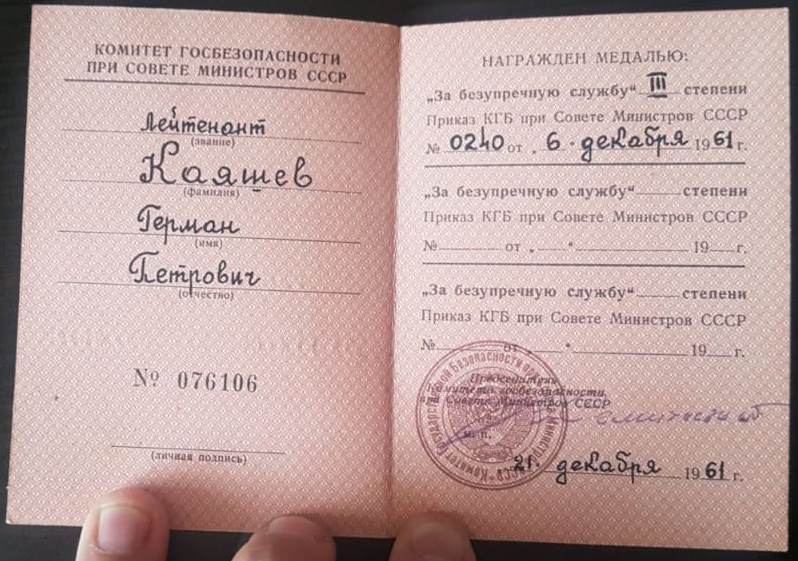 КОМИТЕТ ГОСБЕЗОПАСНОСТИ
ПРИ СОВЕТЕ МИНИСТРОВ СССР
Лейтенант
(звание)
Каяшев
(фамилия)
Герман
(имя)
Петрович
(отчество)
№ 076106
(личная подпись)
НАГРАЖДЕН МЕДАЛЬЮ:
„За безупречную службу“ III степени
Приказ КГБ при Совете Министров СССР
№ 0240 от „ 6 “ декабря 1961 г.
„За безупречную службу“ степени
Приказ КГБ при Совете Министров СССР
№ от „ “ 19 г.
„За безупречную службу“ степени
Приказ КГБ при Совете Министров СССР
№ от „ “ 19 г.
Председатель
Комитета госбезопасности
при Совете Министров СССР
м. п.
21. декабря 1961 г.